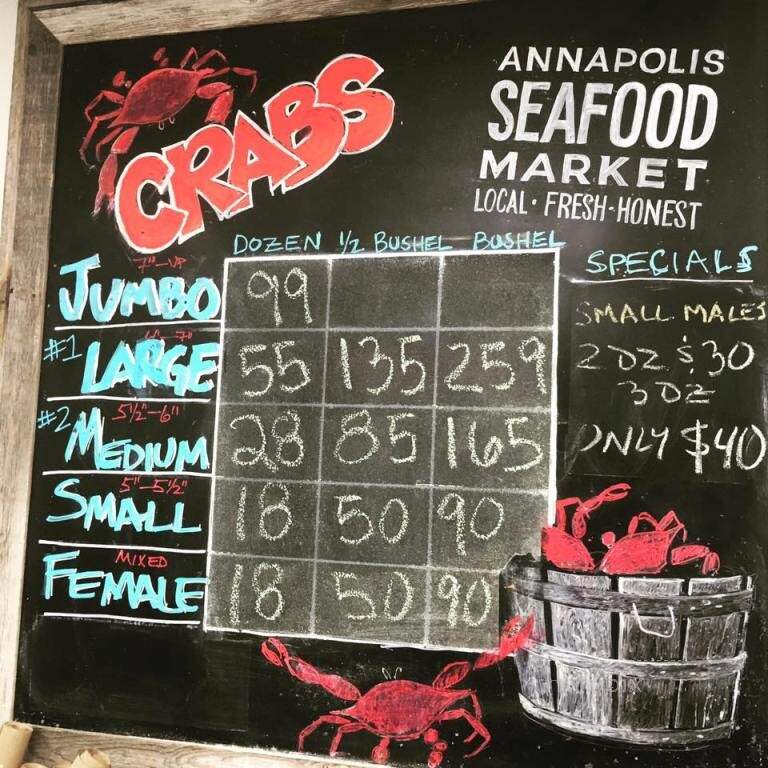 CRABS
ANNAPOLIS
SEAFOOD
MARKET
LOCAL · FRESH · HONEST
DOZEN 1/2 BUSHEL BUSHEL
7"-UP
JUMBO 99
#1 LARGE 55 135 259
#2 5 1/2"-6"
MEDIUM 28 85 165
5"-5 1/2"
SMALL 18 50 90
MIXED
FEMALE 18 50 90
SPECIALS
SMALL MALES
2 DZ $30
3 DZ
ONLY $40